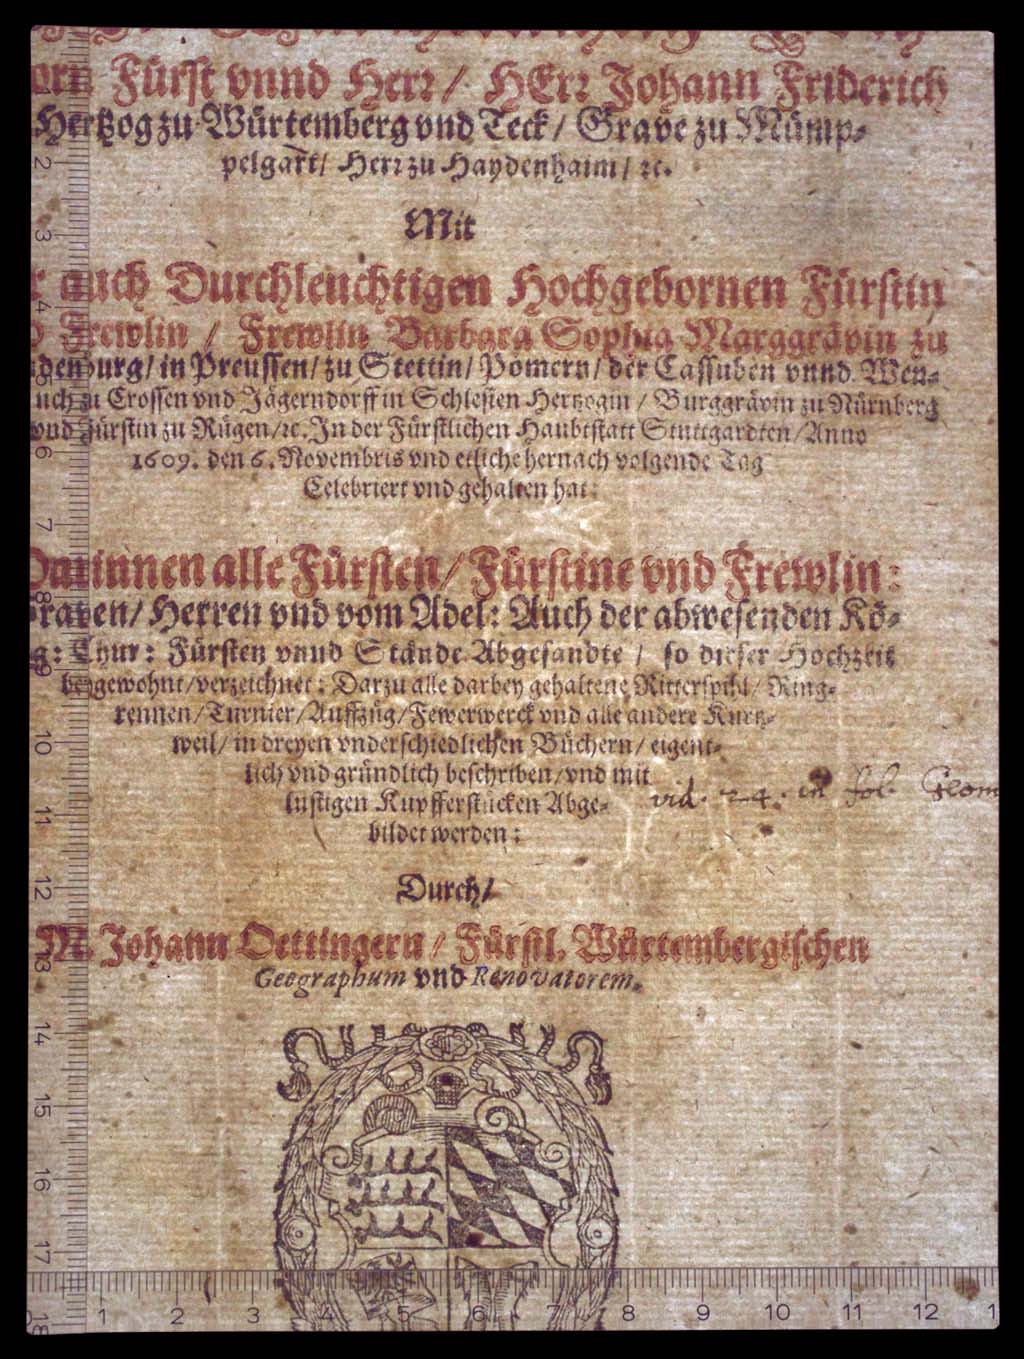 Fürst vnnd Herr / HErr Johann Friderich
Hertzog zu Würtemberg vnd Teck / Grave zu Mümp⸗
pelgart / Herr zu Haydenhaim / ꝛc.
Mit
auch Durchleuchtigen Hochgebornen Fürstin
Frewlin / Frewlin Barbara Sophia Marggrävin zu
denburg / in Preussen / zu Stettin / Pomern / der Cassuben vnnd Wen⸗
uch zu Crossen vnd Jägerndorff in Schlesien Hertzogin / Burggrävin zu Nürnberg
vnd Fürstin zu Rügen / ꝛc. In der Fürstlichen Haubtstatt Stuttgardten / Anno
1609. den 6. Novembris vnd etliche hernach volgende Tag
Celebriert vnd gehalten hat:
Darinnen alle Fürsten / Fürstine vnd Frewlin:
Graven / Herren vnd vom Adel: Auch der abwesenden Kö⸗
g: Chur: Fürsten vnnd Stände Abgesandte / so dieser Hochzeit
beygewohnt / verzeichnet: Darzu alle darbey gehaltene Ritterspihl / Ring⸗
rennen / Turnier / Auffzüg / Fewerwerck vnd alle andere Kurtz⸗
weil / in dreyen vnderschiedlichen Büchern / eigent⸗
lich vnd gründlich beschriben / vnd mit
lustigen Kupfferstucken Abge⸗
vid. 24. in fol.
bildet werden:
Durch /
M. Johann Oettingern / Fürstl. Würtembergischen
Geographum vnd Renovatorem.
2
3
4
5
6
7
8
9
10
11
12
13
14
15
16
17
18
1 2 3 4 5 6 7 8 9 10 11 12 1